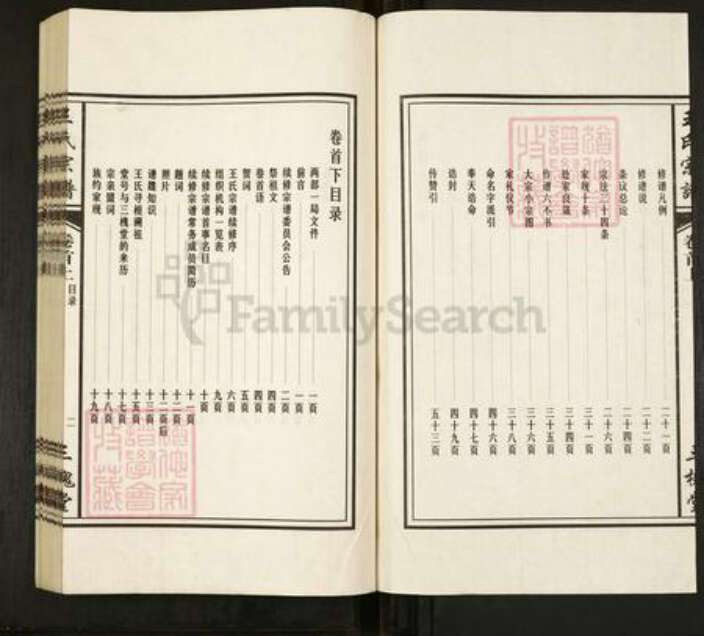 王氏宗谱
卷首
三槐堂
修谱凡例 二十一页
修谱说 二十二页
条议总论 二十四页
宗法二十四条 二十六页
家规十条 三十一页
处家良箴 三十四页
作谱六不书 三十五页
大宗小宗图 三十六页
家礼仪节 三十八页
命名字派引 四十六页
奉天诰命 四十七页
诰封 四十九页
传赞引 五十三页
卷首下目录
两部一局文件 一页
前言 一页
续修宗谱委员会公告 二页
祭祖文 四页
卷首语 四页
贺词 五页
王氏宗谱续修序 六页
组织机构一览表 九页
续修宗谱首事名目 十页
续修宗谱常务成员简历 十一页
题词 十二页
照片 十二页后
谱牒知识 十三页
王氏寻根溯祖 十五页
堂号与三槐堂的来历 十七页
宗亲盟词 十八页
族约家规 十九页
王氏宗谱
卷首上
目录
二
三槐堂
FamilySearch